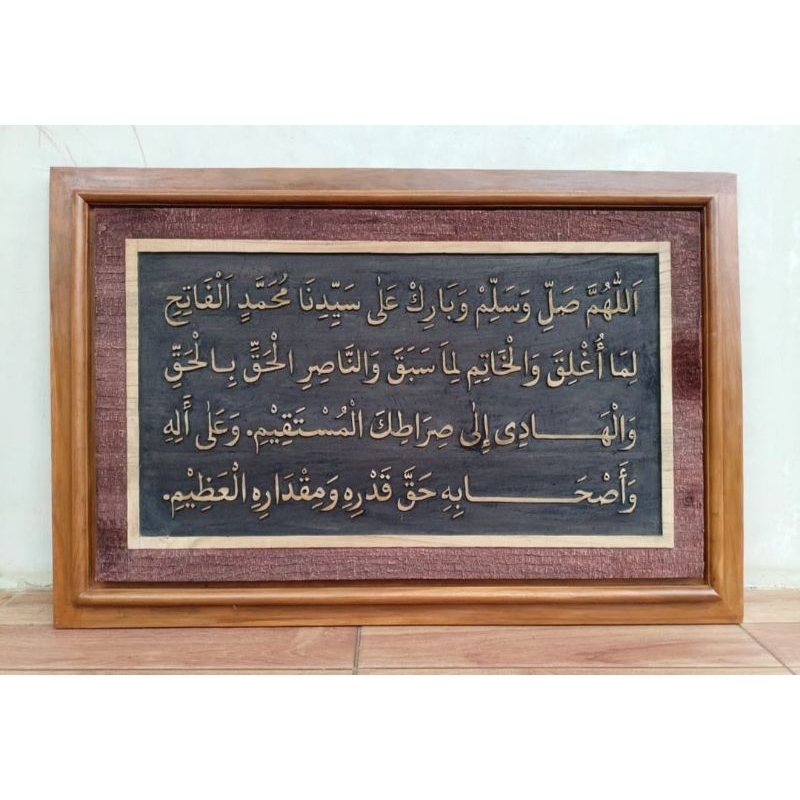 اَللّٰهُمَّ صَلِّ وَسَلِّمْ وَبَارِكْ عَلٰى سَيِّدِنَا مُحَمَّدٍ اَلْفَاتِحِ
لِمَا أُغْلِقَ وَالْخَاتِمِ لِمَا سَبَقَ وَالنَّاصِرِ الْحَقِّ بِالْحَقِّ
وَالْهَادِى إِلٰى صِرَاطِكَ الْمُسْتَقِيْمِ. وَعَلٰى أٰلِهِ
وَأَصْحَابِهِ حَقَّ قَدْرِهِ وَمِقْدَارِهِ الْعَظِيْمِ.